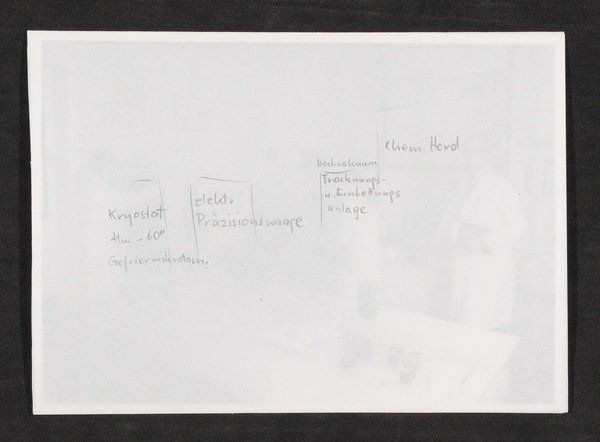 Chem Herd
Hochvakuum
Trocknungs-
u. Einbettungs
anlage
elektr
Präzisionswaage
Kryostat
Atm -60°
Gefriermikrotom